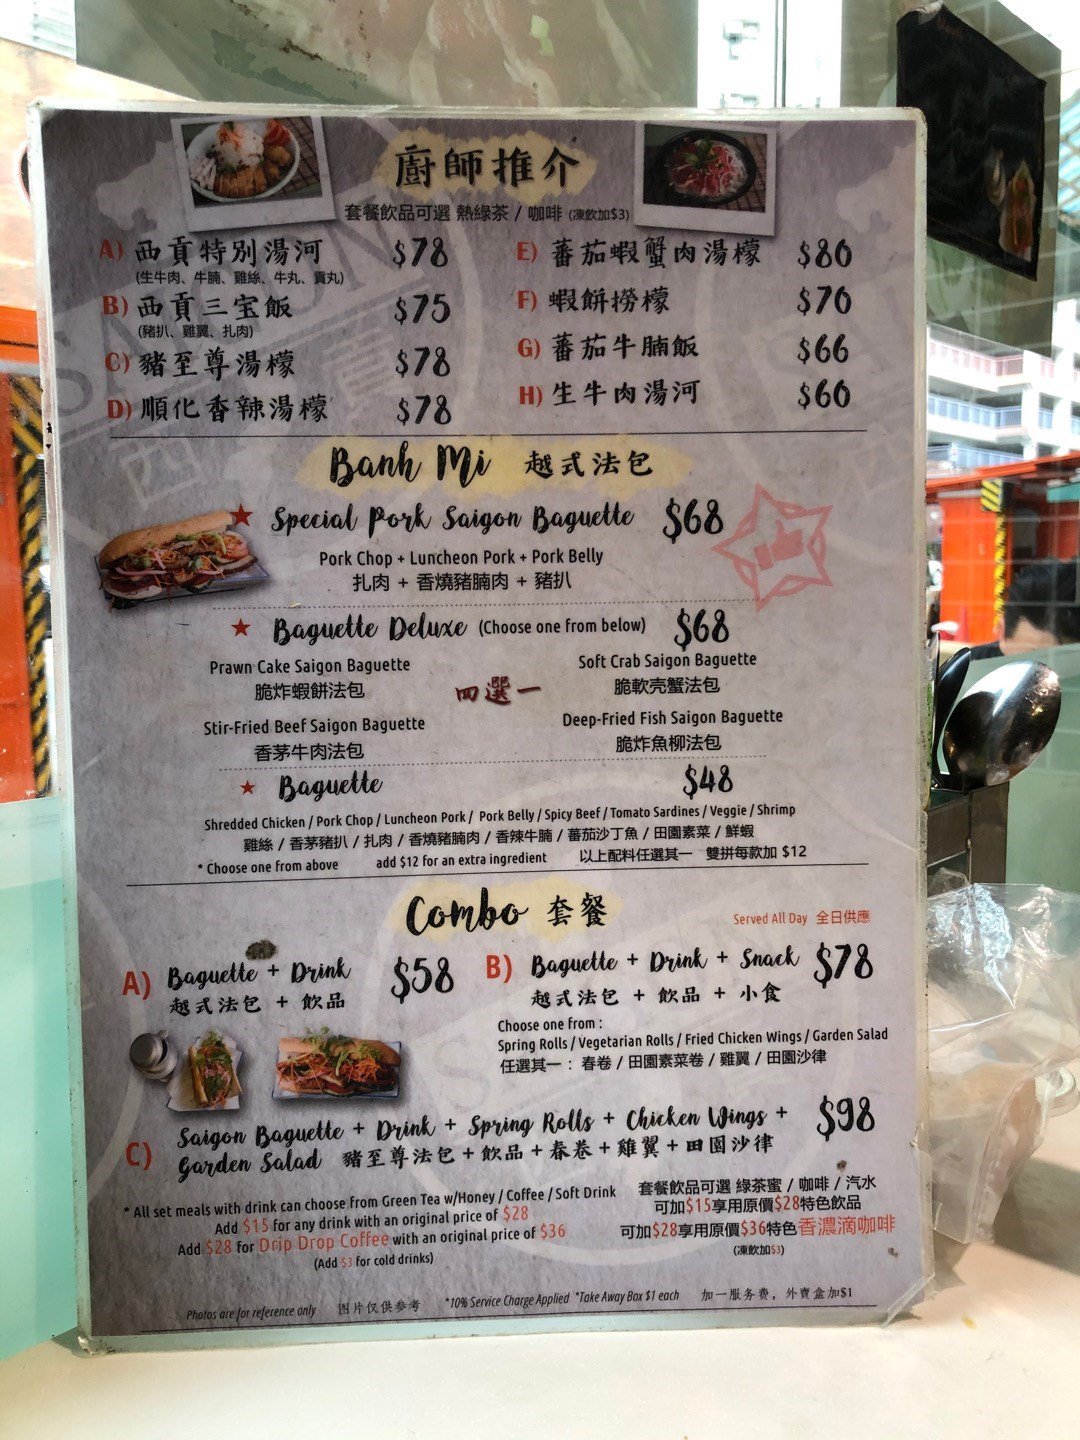 廚師推介
套餐飲品可選 熱綠茶 / 咖啡 (凍飲加$3)
A) 西貢特別湯河 $78
(生牛肉、牛腩、雞絲、牛丸、貢丸)
B) 西貢三宝飯 $75
(豬扒、雞翼、扎肉)
C) 豬至尊湯檬 $78
D) 順化香辣湯檬 $78
E) 蕃茄蝦蟹肉湯檬 $80
F) 蝦餅撈檬 $70
G) 蕃茄牛腩飯 $66
H) 生牛肉湯河 $60
Banh Mi 越式法包
Special Pork Saigon Baguette $68
Pork Chop + Luncheon Pork + Pork Belly
扎肉 + 香燒豬腩肉 + 豬扒
Baguette Deluxe (Choose one from below) $68
Prawn Cake Saigon Baguette
脆炸蝦餅法包
四選一
Soft Crab Saigon Baguette
脆軟壳蟹法包
Stir-Fried Beef Saigon Baguette
香茅牛肉法包
Deep-Fried Fish Saigon Baguette
脆炸魚柳法包
Baguette $48
Shredded Chicken / Pork Chop / Luncheon Pork / Pork Belly / Spicy Beef / Tomato Sardines / Veggie / Shrimp
雞絲 / 香茅豬扒 / 扎肉 / 香燒豬腩肉 / 香辣牛腩 / 蕃茄沙丁魚 / 田園素菜 / 鮮蝦
* Choose one from above add $12 for an extra ingredient 以上配料任選其一 雙拼每款加 $12
Combo 套餐
Served All Day 全日供應
A) Baguette + Drink $58
越式法包 + 飲品
B) Baguette + Drink + Snack $78
越式法包 + 飲品 + 小食
Choose one from :
Spring Rolls / Vegetarian Rolls / Fried Chicken Wings / Garden Salad
任選其一 : 春卷 / 田園素菜卷 / 雞翼 / 田園沙律
C) Saigon Baguette + Drink + Spring Rolls + Chicken Wings + $98
Garden Salad 豬至尊法包 + 飲品 + 春卷 + 雞翼 + 田園沙律
* All set meals with drink can choose from Green Tea w/Honey / Coffee / Soft Drink
Add $15 for any drink with an original price of $28
Add $28 for Drip Drop Coffee with an original price of $36
(Add $3 for cold drinks)
套餐飲品可選 綠茶蜜 / 咖啡 / 汽水
可加$15享用原價$28特色飲品
可加$28享用原價$36特色香濃滴咖啡
(凍飲加$3)
Photos are for reference only 图片仅供参考 *10% Service Charge Applied *Take Away Box $1 each 加一服务费，外賣盒加$1